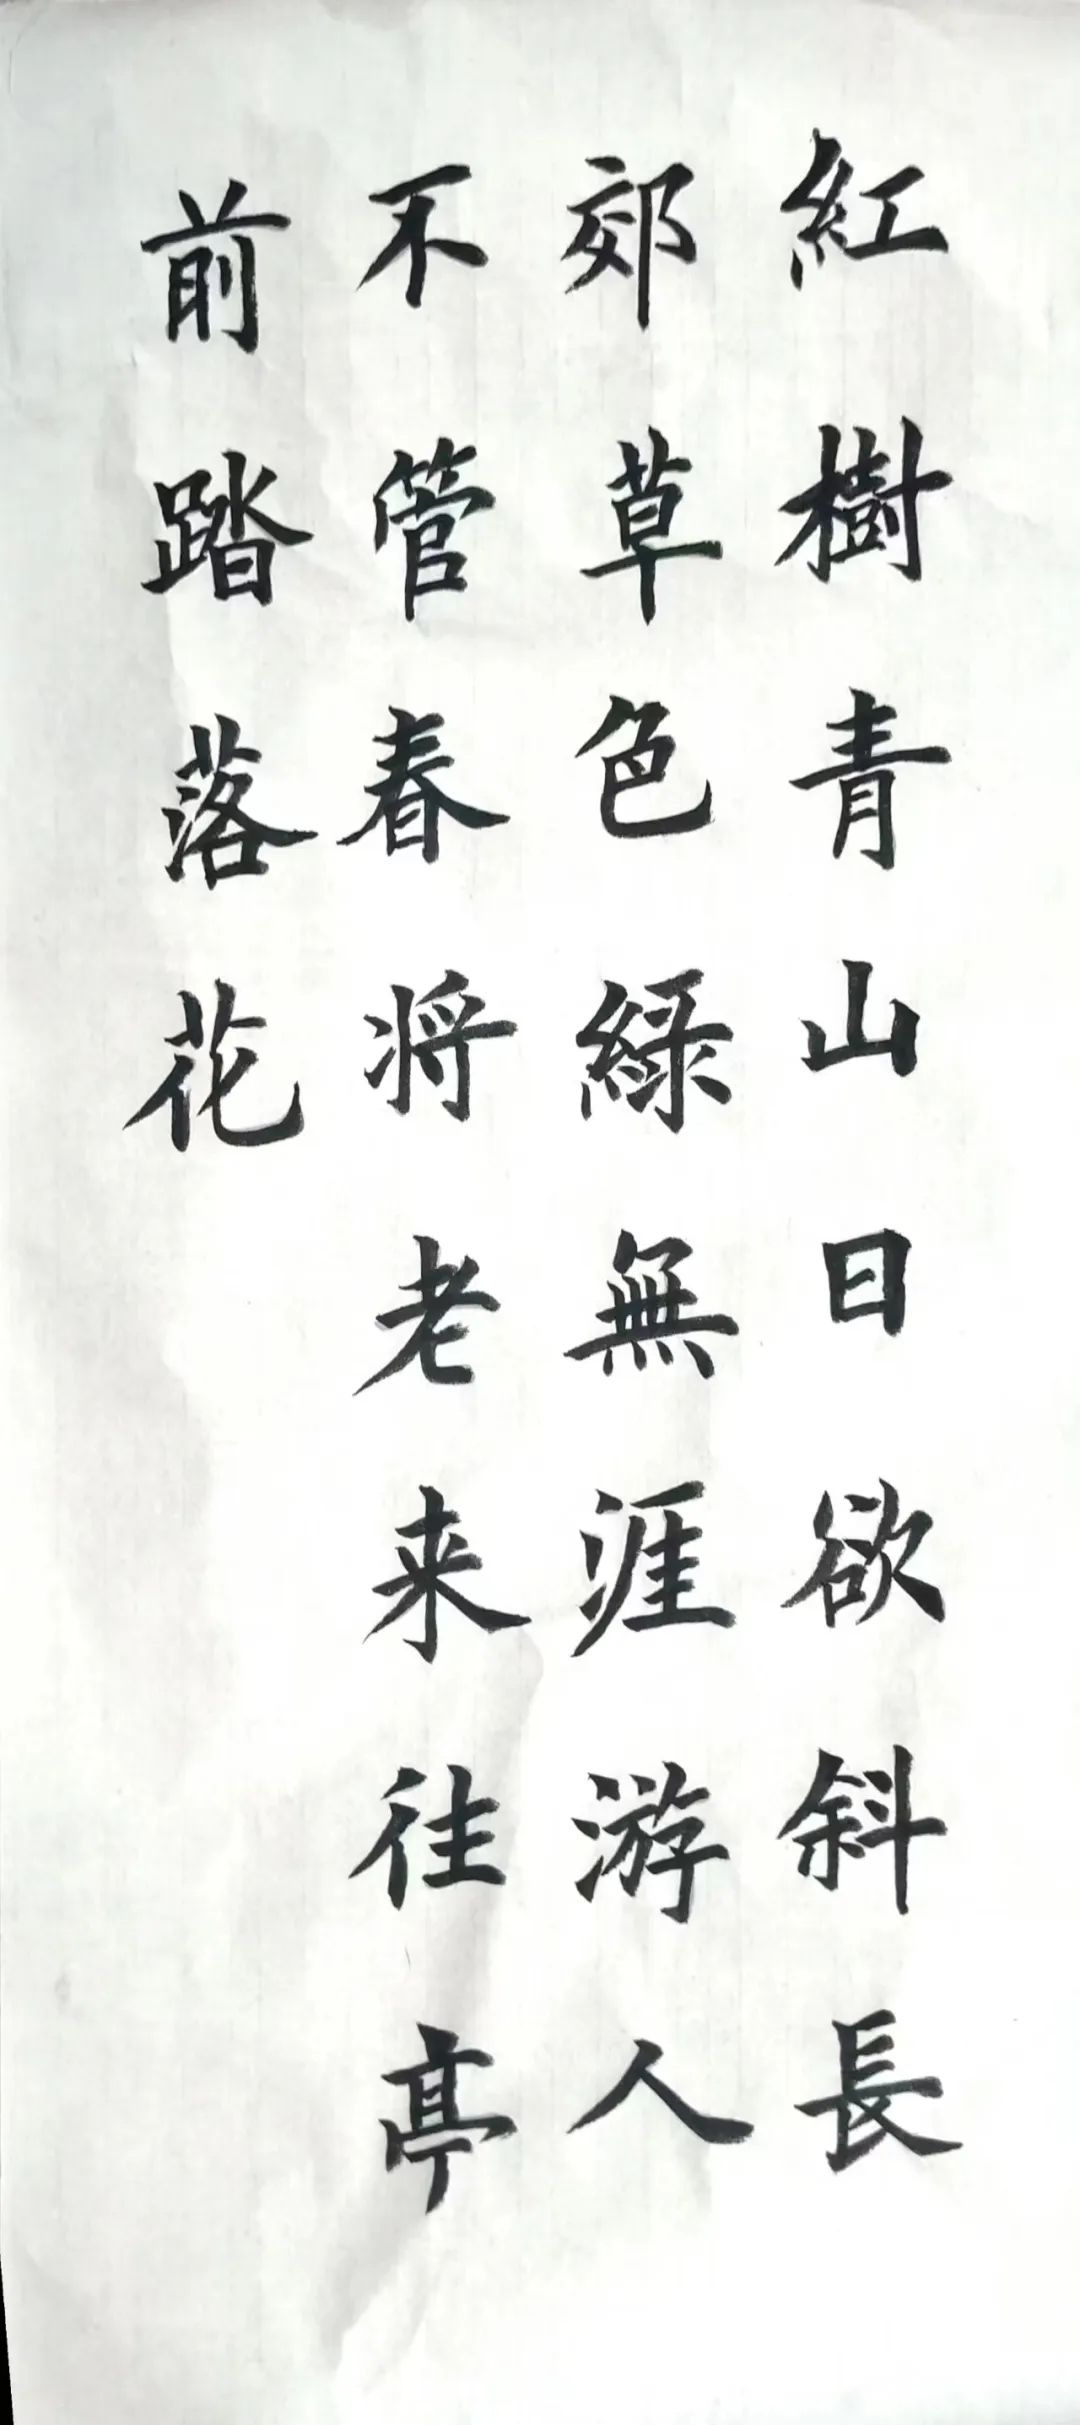 紅樹青山日欲斜長
郊草色綠無涯游人
不管春将老来往亭
前踏落花